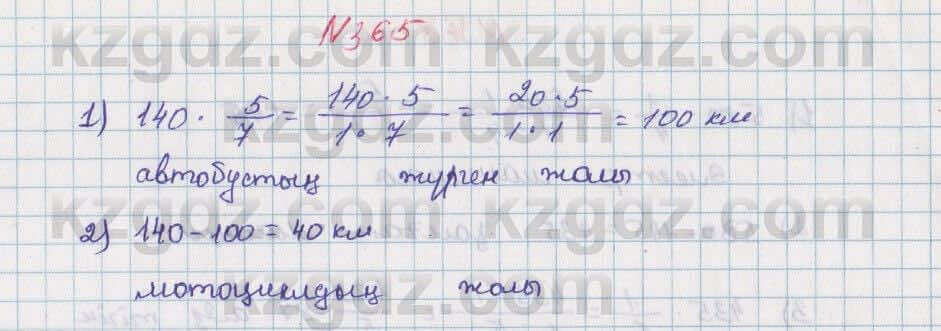 N365
1) 140 · 5/7 = 140 · 5 / 1 · 7 = 20 · 5 / 1 · 1 = 100 км
автобустың жүрген жолы
2) 140 - 100 = 40 км
мотоциклдың жолы
kzgdz.com kzgdz.com
kzgdz.com kzgdz.com
kzgdz.com kzgdz.com